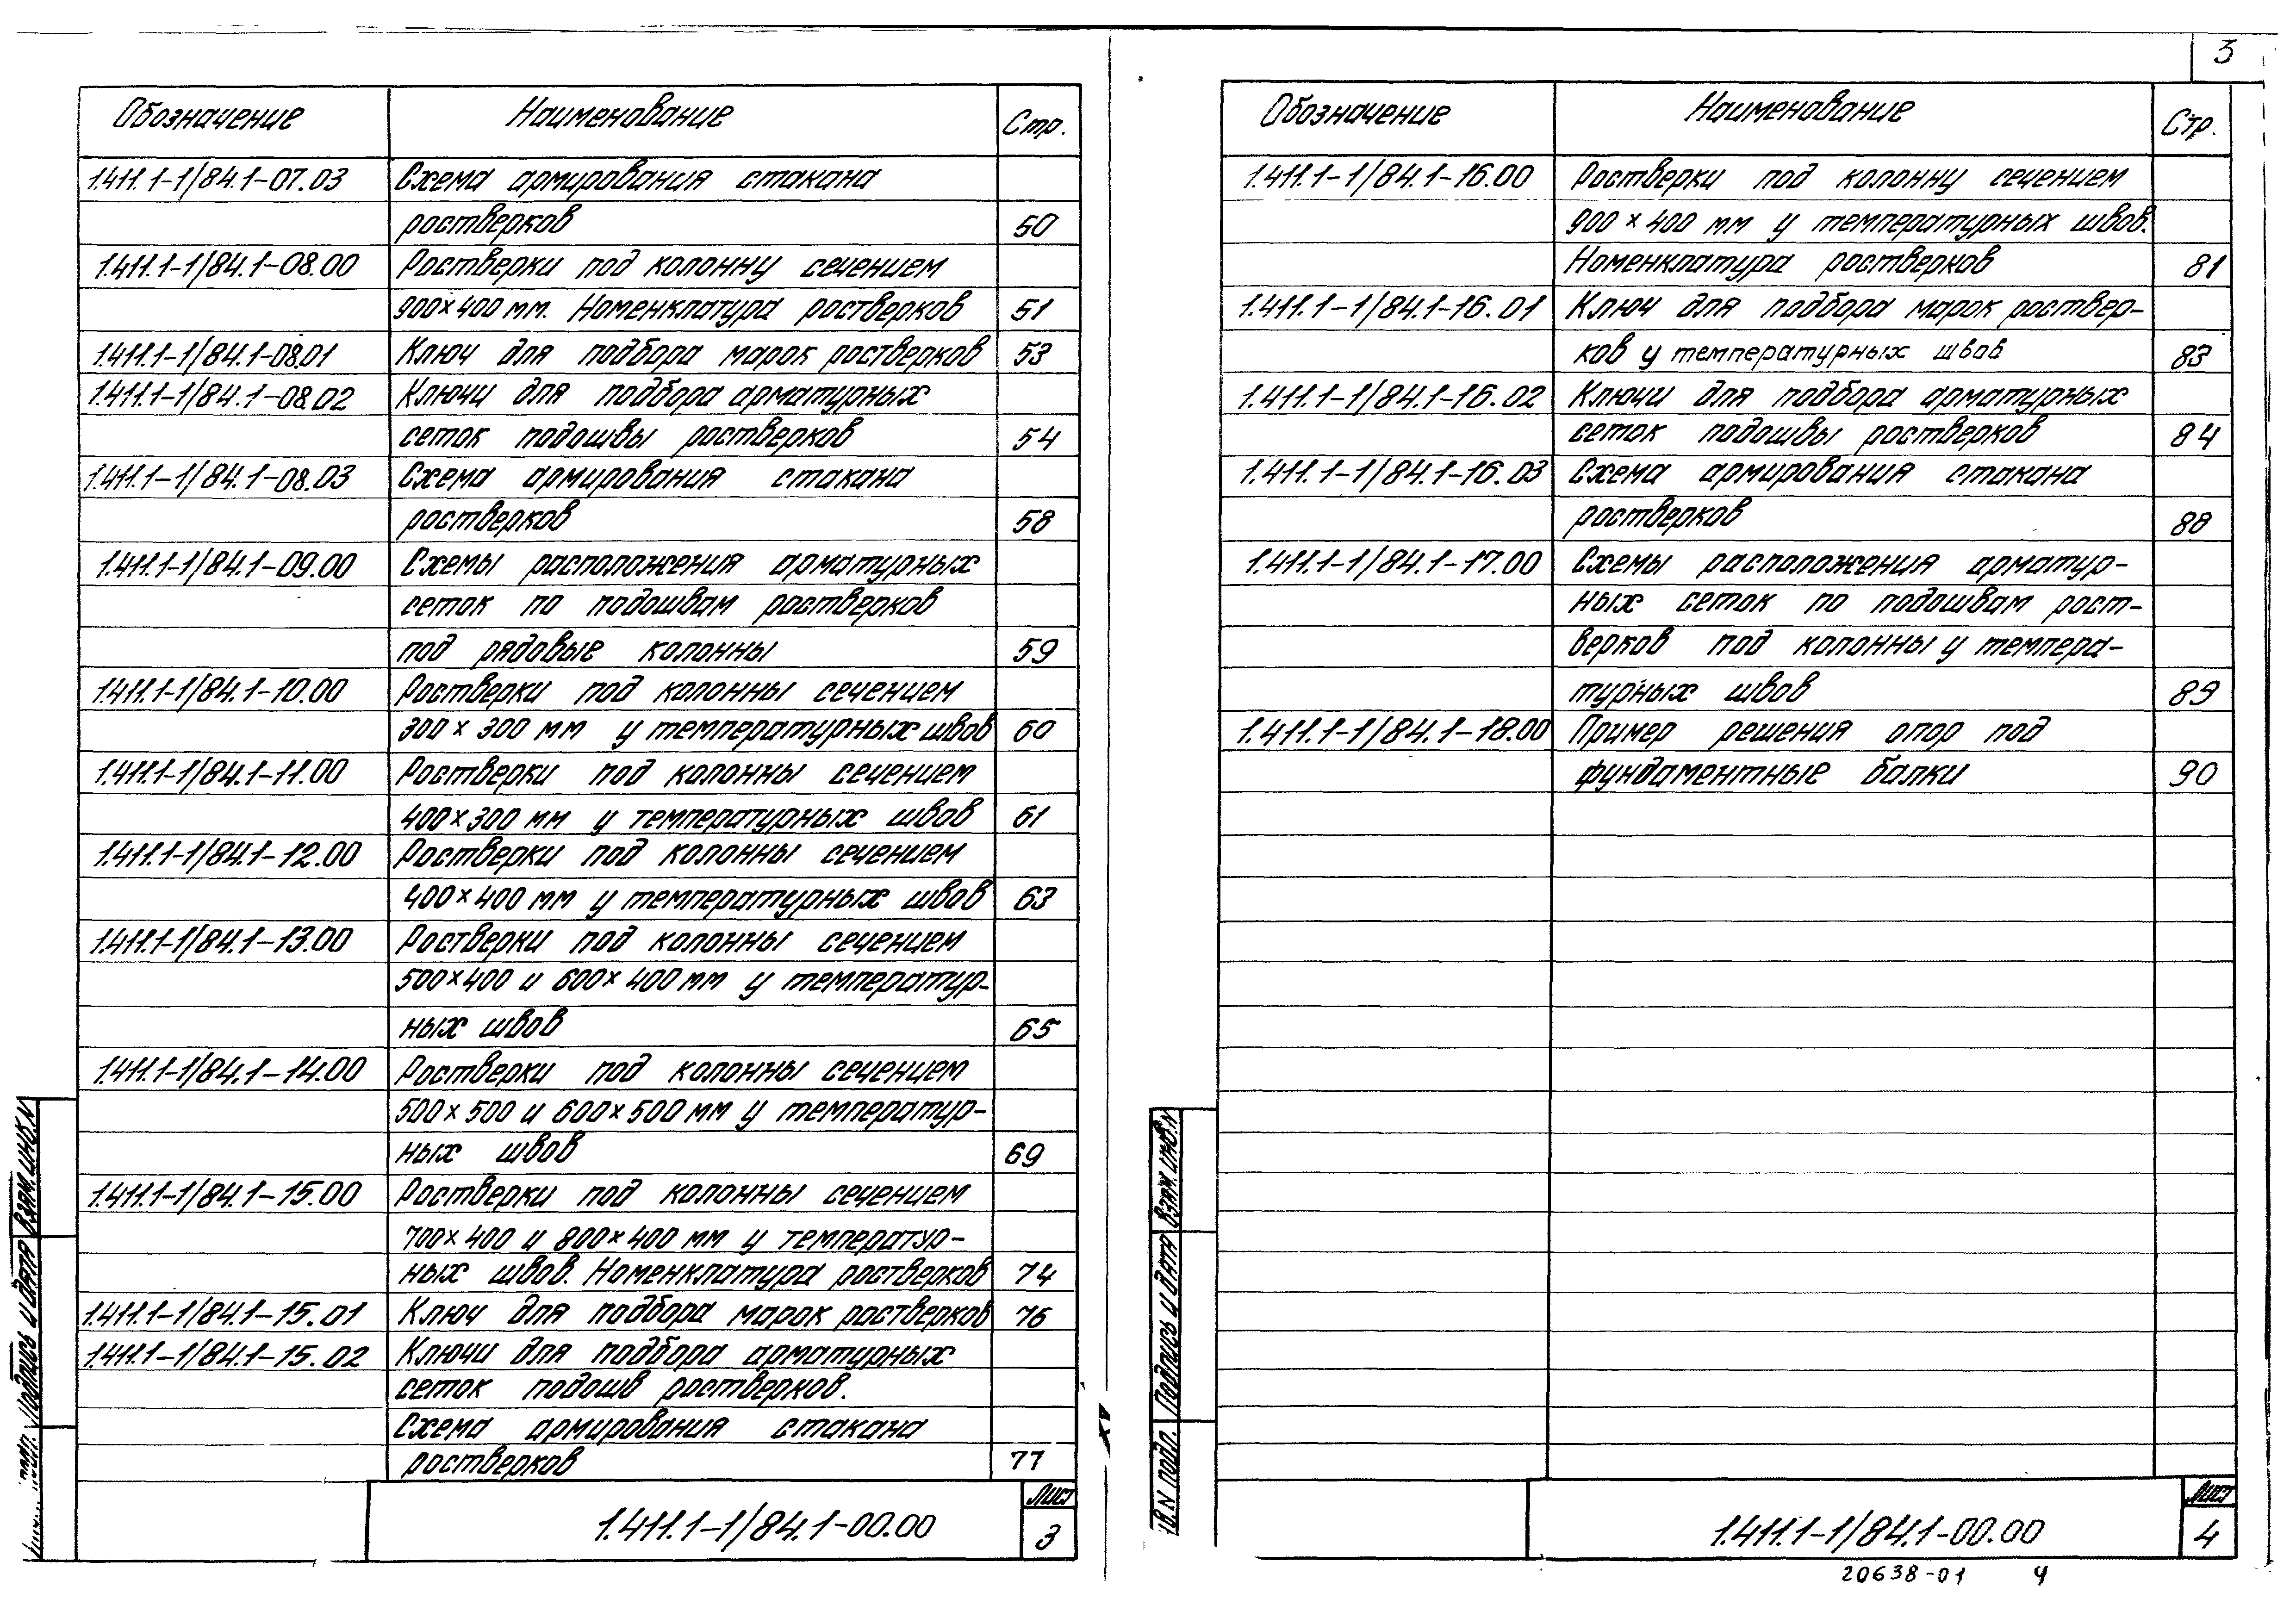 3
Обозначение Наименование Стр.
1.411.1-1/84.1-07.03 Схема армирования стакана
ростверков 50
1.411.1-1/84.1-08.00 Ростверки под колонну сечением
900×400 мм. Номенклатура ростверков 51
1.411.1-1/84.1-08.01 Ключ для подбора марок ростверков 53
1.411.1-1/84.1-08.02 Ключи для подбора арматурных
сеток подошвы ростверков 54
1.411.1-1/84.1-08.03 Схема армирования стакана
ростверков 58
1.411.1-1/84.1-09.00 Схемы расположения арматурных
сеток по подошвам ростверков
под рядовые колонны 59
1.411.1-1/84.1-10.00 Ростверки под колонны сечением
300×300 мм у температурных швов 60
1.411.1-1/84.1-11.00 Ростверки под колонны сечением
400×300 мм у температурных швов 61
1.411.1-1/84.1-12.00 Ростверки под колонны сечением
400×400 мм у температурных швов 63
1.411.1-1/84.1-13.00 Ростверки под колонны сечением
500×400 и 600×400 мм у температур-
ных швов 65
1.411.1-1/84.1-14.00 Ростверки под колонны сечением
500×500 и 600×500 мм у температур-
ных швов 69
1.411.1-1/84.1-15.00 Ростверки под колонны сечением
700×400 и 800×400 мм у температур-
ных швов. Номенклатура ростверков 74
1.411.1-1/84.1-15.01 Ключ для подбора марок ростверков 76
1.411.1-1/84.1-15.02 Ключи для подбора арматурных
сеток подошв ростверков.
Схема армирования стакана
ростверков 77
Взам. инв. N
Подпись и дата
подл.
1.411.1-1/84.1-00.00
Лист
3
Обозначение Наименование Стр.
1.411.1-1/84.1-16.00 Ростверки под колонну сечением
900×400 мм у температурных швов.
Номенклатура ростверков 81
1.411.1-1/84.1-16.01 Ключ для подбора марок роствер-
ков у температурных швов 83
1.411.1-1/84.1-16.02 Ключи для подбора арматурных
сеток подошвы ростверков 84
1.411.1-1/84.1-16.03 Схема армирования стакана
ростверков 88
1.411.1-1/84.1-17.00 Схемы расположения арматур-
ных сеток по подошвам рост-
верков под колонны у темпера-
турных швов 89
1.411.1-1/84.1-18.00 Пример решения опор под
фундаментные балки 90
Взам. инв. N
Подпись и дата
N подл.
1.411.1-1/84.1-00.00
Лист
4
20638-01 4